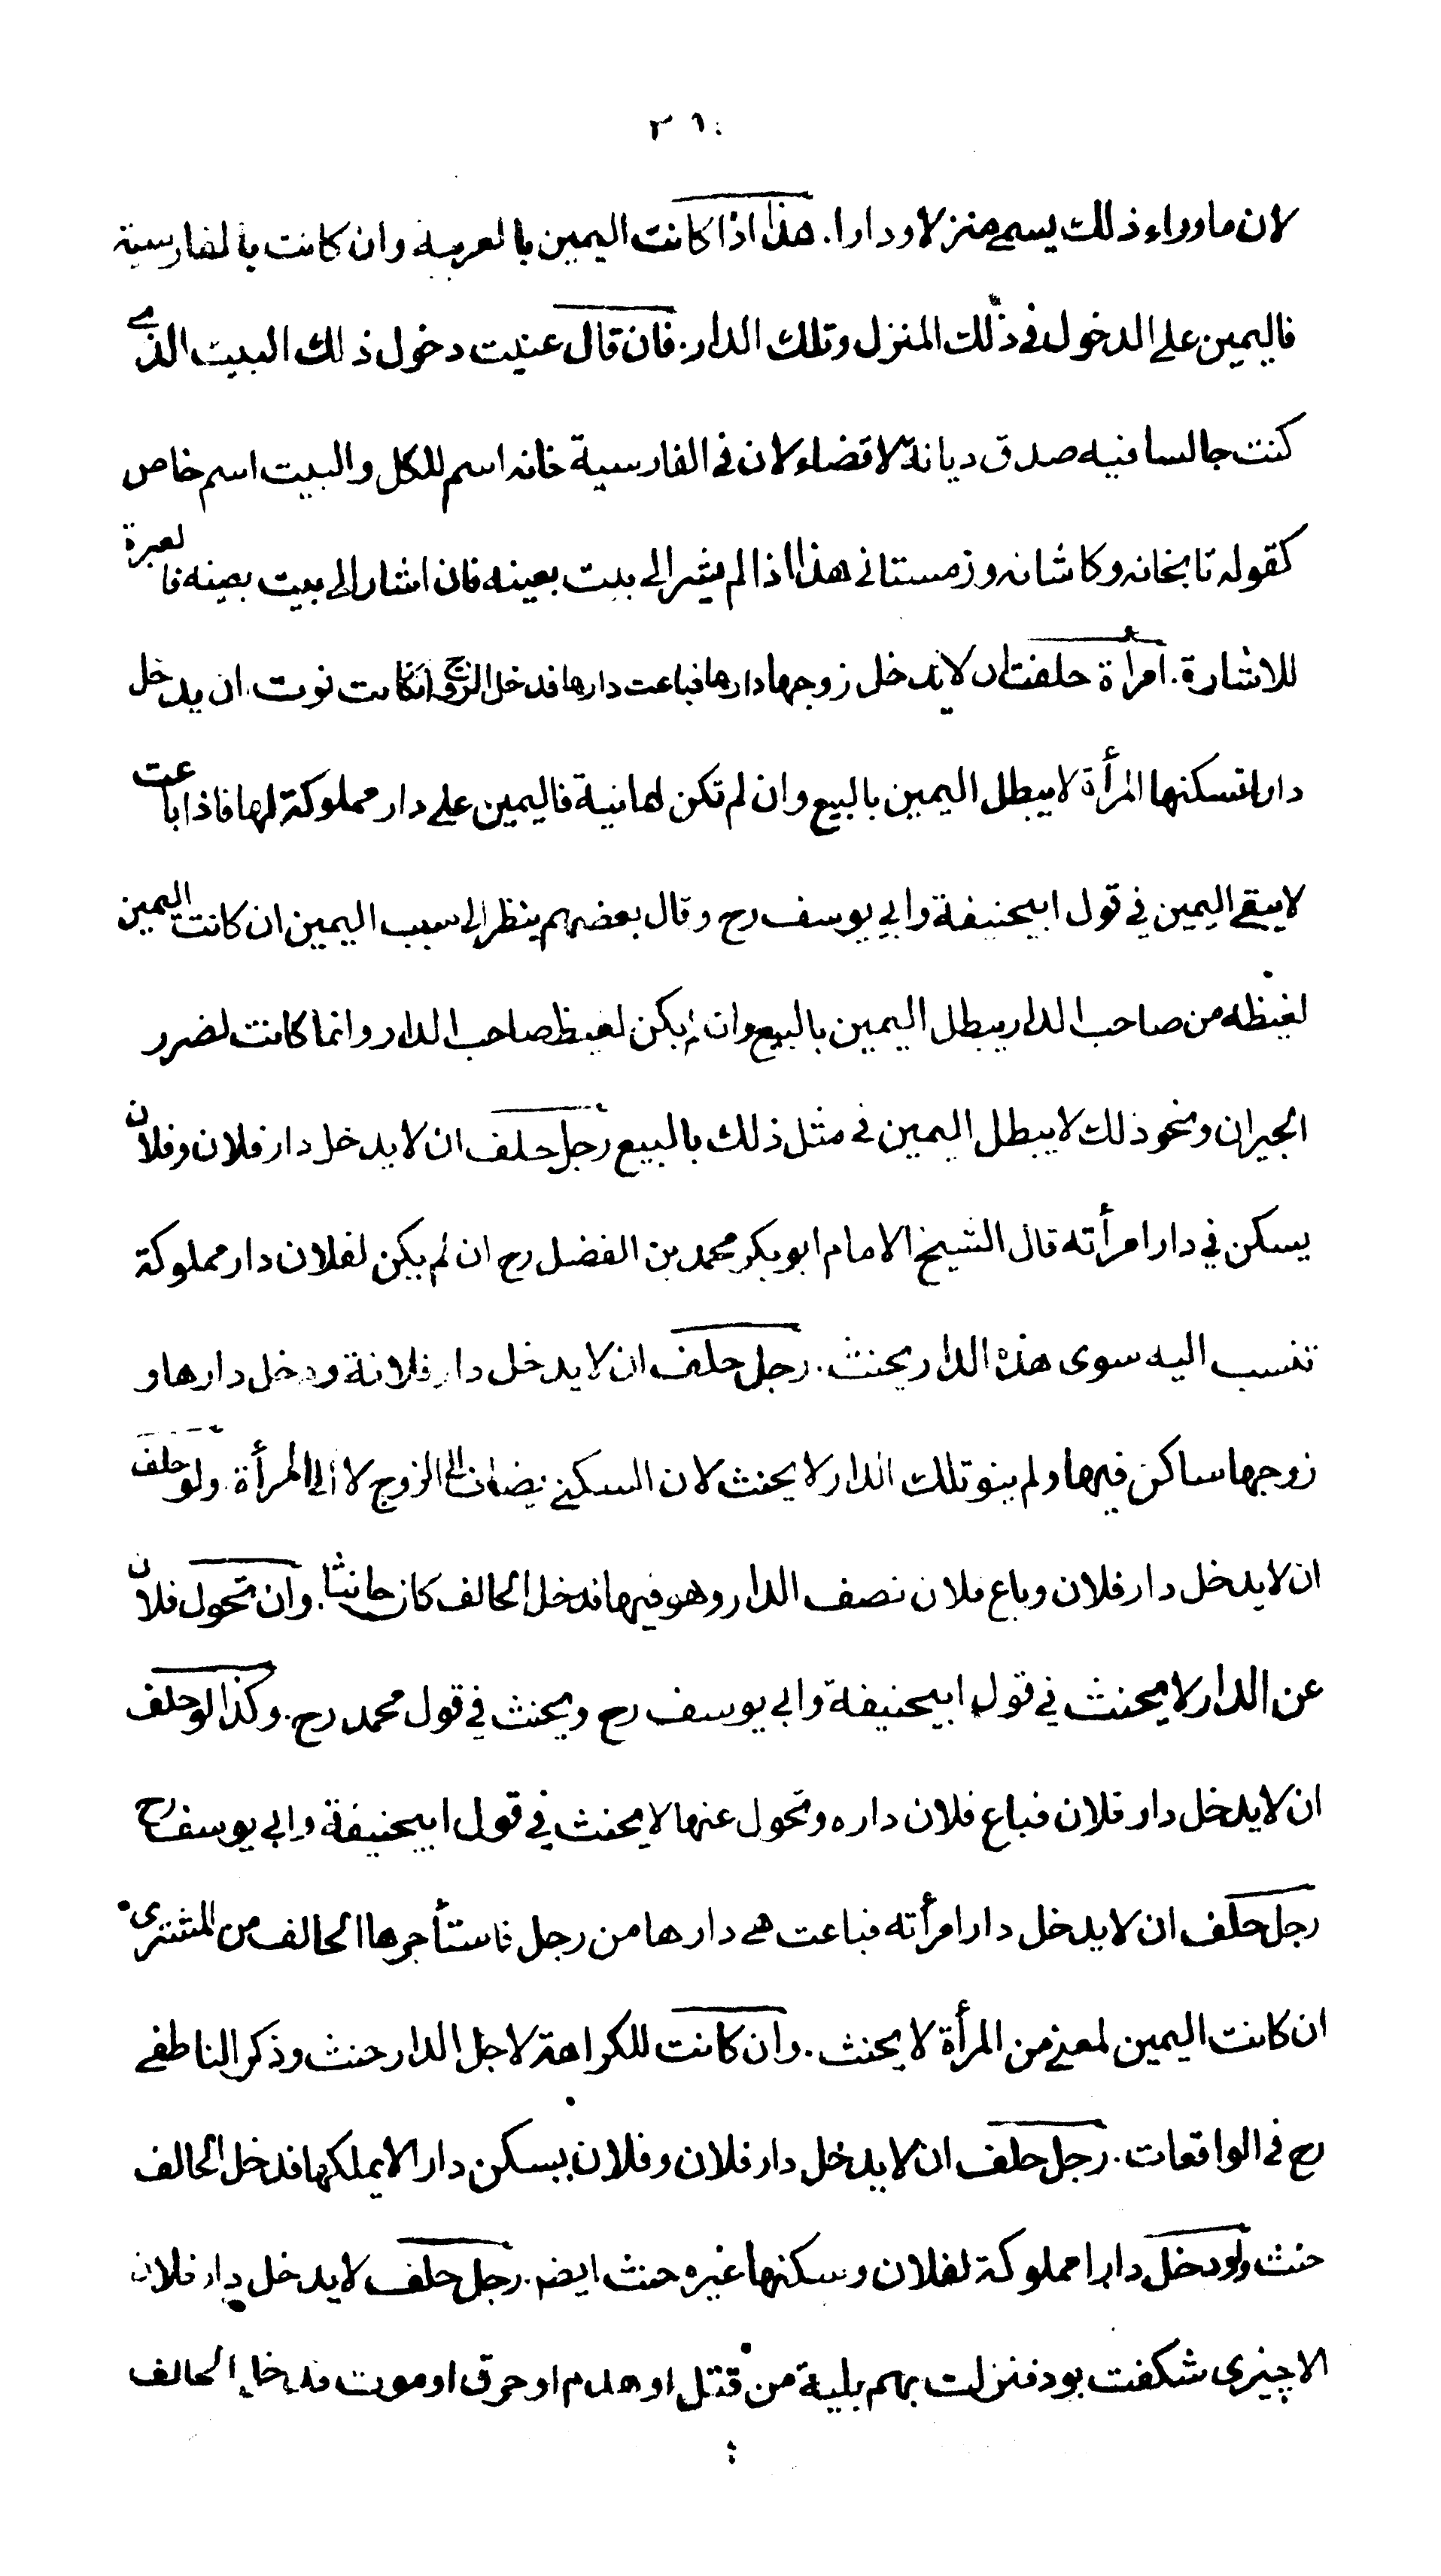 ٣٦٠
لان ماوراء ذلك يسمى منزلا ودارا. هذا اذا كانت اليمين بالعربية وان كانت بالفارسية
فاليمين على الدخول في ذلك المنزل وتلك الدار. فان قال عنيت دخول ذلك البيت الذي
كنت جالسا فيه صدق ديانة لا قضاء لان في الفارسية خانه اسم للكل والبيت اسم خاص
كقوله تابخانه وكاشانه وزمستاني هذا اذا لم يشر الى بيت بعينه فان اشار الى بيت بعينه فالعبرة
للاشارة. امرأة حلفت ان لا يدخل زوجها دارها فباعت دارها فدخل الزوج ان كانت نوت ان يدخل
دارا تسكنها المرأة لا يبطل اليمين بالبيع وان لم تكن لها نية فاليمين على دار مملوكة لها فاذا باعت
لا يبقى اليمين في قول ابيحنيفة وابي يوسف رح وقال بعضهم ينظر الى سبب اليمين ان كانت اليمين
لغيظه من صاحب الدار يبطل اليمين بالبيع وان لم يكن لغيظ صاحب الدار وانما كانت لضرر
الجيران ونحو ذلك لا يبطل اليمين في مثل ذلك بالبيع رجل حلف ان لا يدخل دار فلان وفلان
يسكن في دار امرأته قال الشيخ الامام ابو بكر محمد بن الفضل رح ان لم يكن لفلان دار مملوكة
تنسب اليه سوى هذه الدار يحنث. رجل حلف ان لا يدخل دار فلانة ودخل دارها و
زوجها ساكن فيها ولم ينو تلك الدار لا يحنث لان السكنى يضاف الى الزوج لا الى المرأة. ولو حلف
ان لا يدخل دار فلان وباع فلان نصف الدار وهو فيها فدخل الحالف كان حانثا. وان تحول فلان
عن الدار لا يحنث في قول ابيحنيفة وابي يوسف رح ويحنث في قول محمد رح. وكذا لو حلف
ان لا يدخل دار فلان فباع فلان داره وتحول عنها لا يحنث في قول ابيحنيفة وابي يوسف رح
رجل حلف ان لا يدخل دار امرأته فباعت هي دارها من رجل فاستأجرها الحالف من المشترى
ان كانت اليمين لمعنى من المرأة لا يحنث. وان كانت للكراهة لاجل الدار حنث وذكر الناطفى
رح في الواقعات. رجل حلف ان لا يدخل دار فلان وفلان يسكن دارا لا يملكها فدخل الحالف
حنث ولو دخل دارا مملوكة لفلان وسكنها غيره حنث ايضم. رجل حلف لا يدخل دار فلان
الا چيزى شكفت بود فنزلت بهم بلية من قتل او هدم او حرق او موت فدخل الحالف